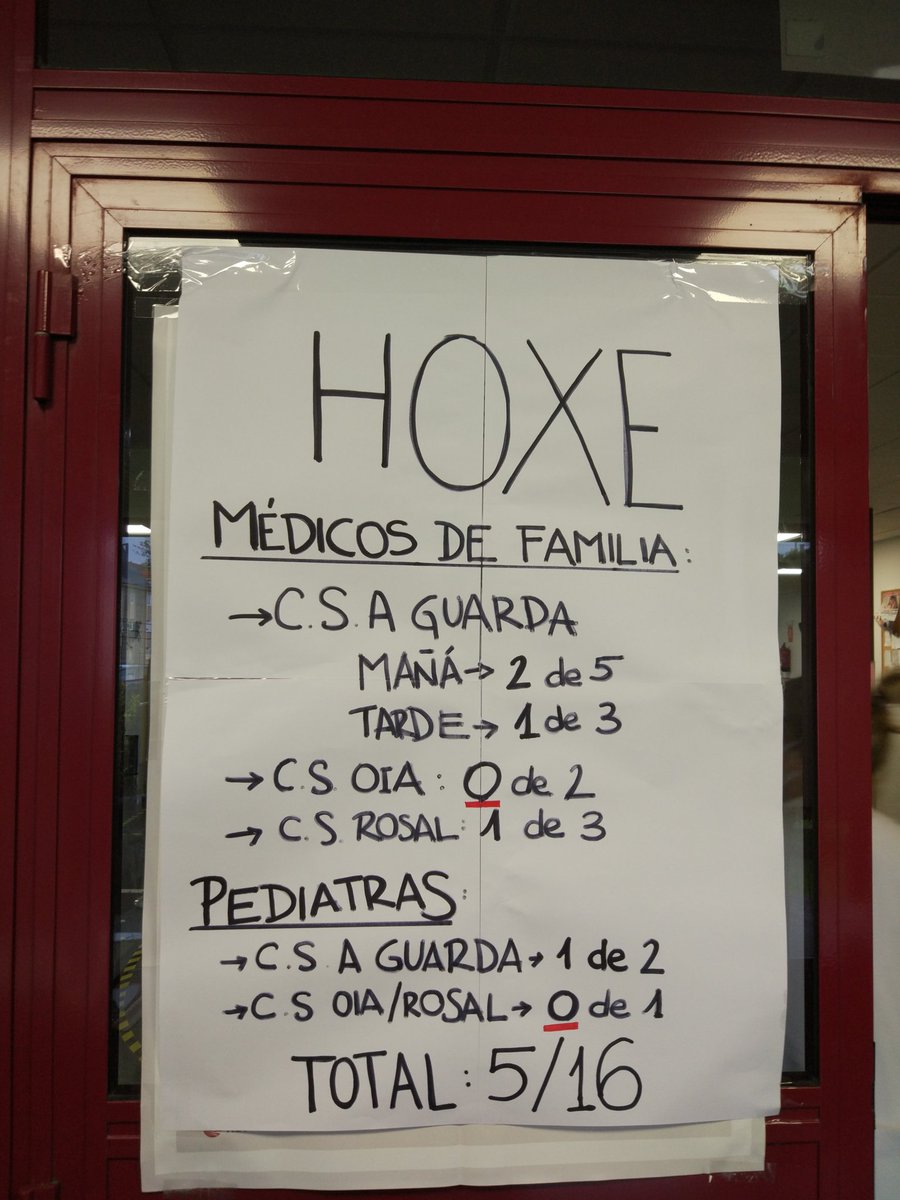 HOXE
MÉDICOS DE FAMILIA:
→C.S. A GUARDA
MAÑÁ→ 2 de 5
TARDE→ 1 de 3
→ C.S. OIA: 0 de 2
→ C.S. ROSAL: 1 de 3
PEDIATRAS:
→C.S. A GUARDA→ 1 de 2
→C.S OIA/ROSAL→ 0 de 1
TOTAL: 5/16